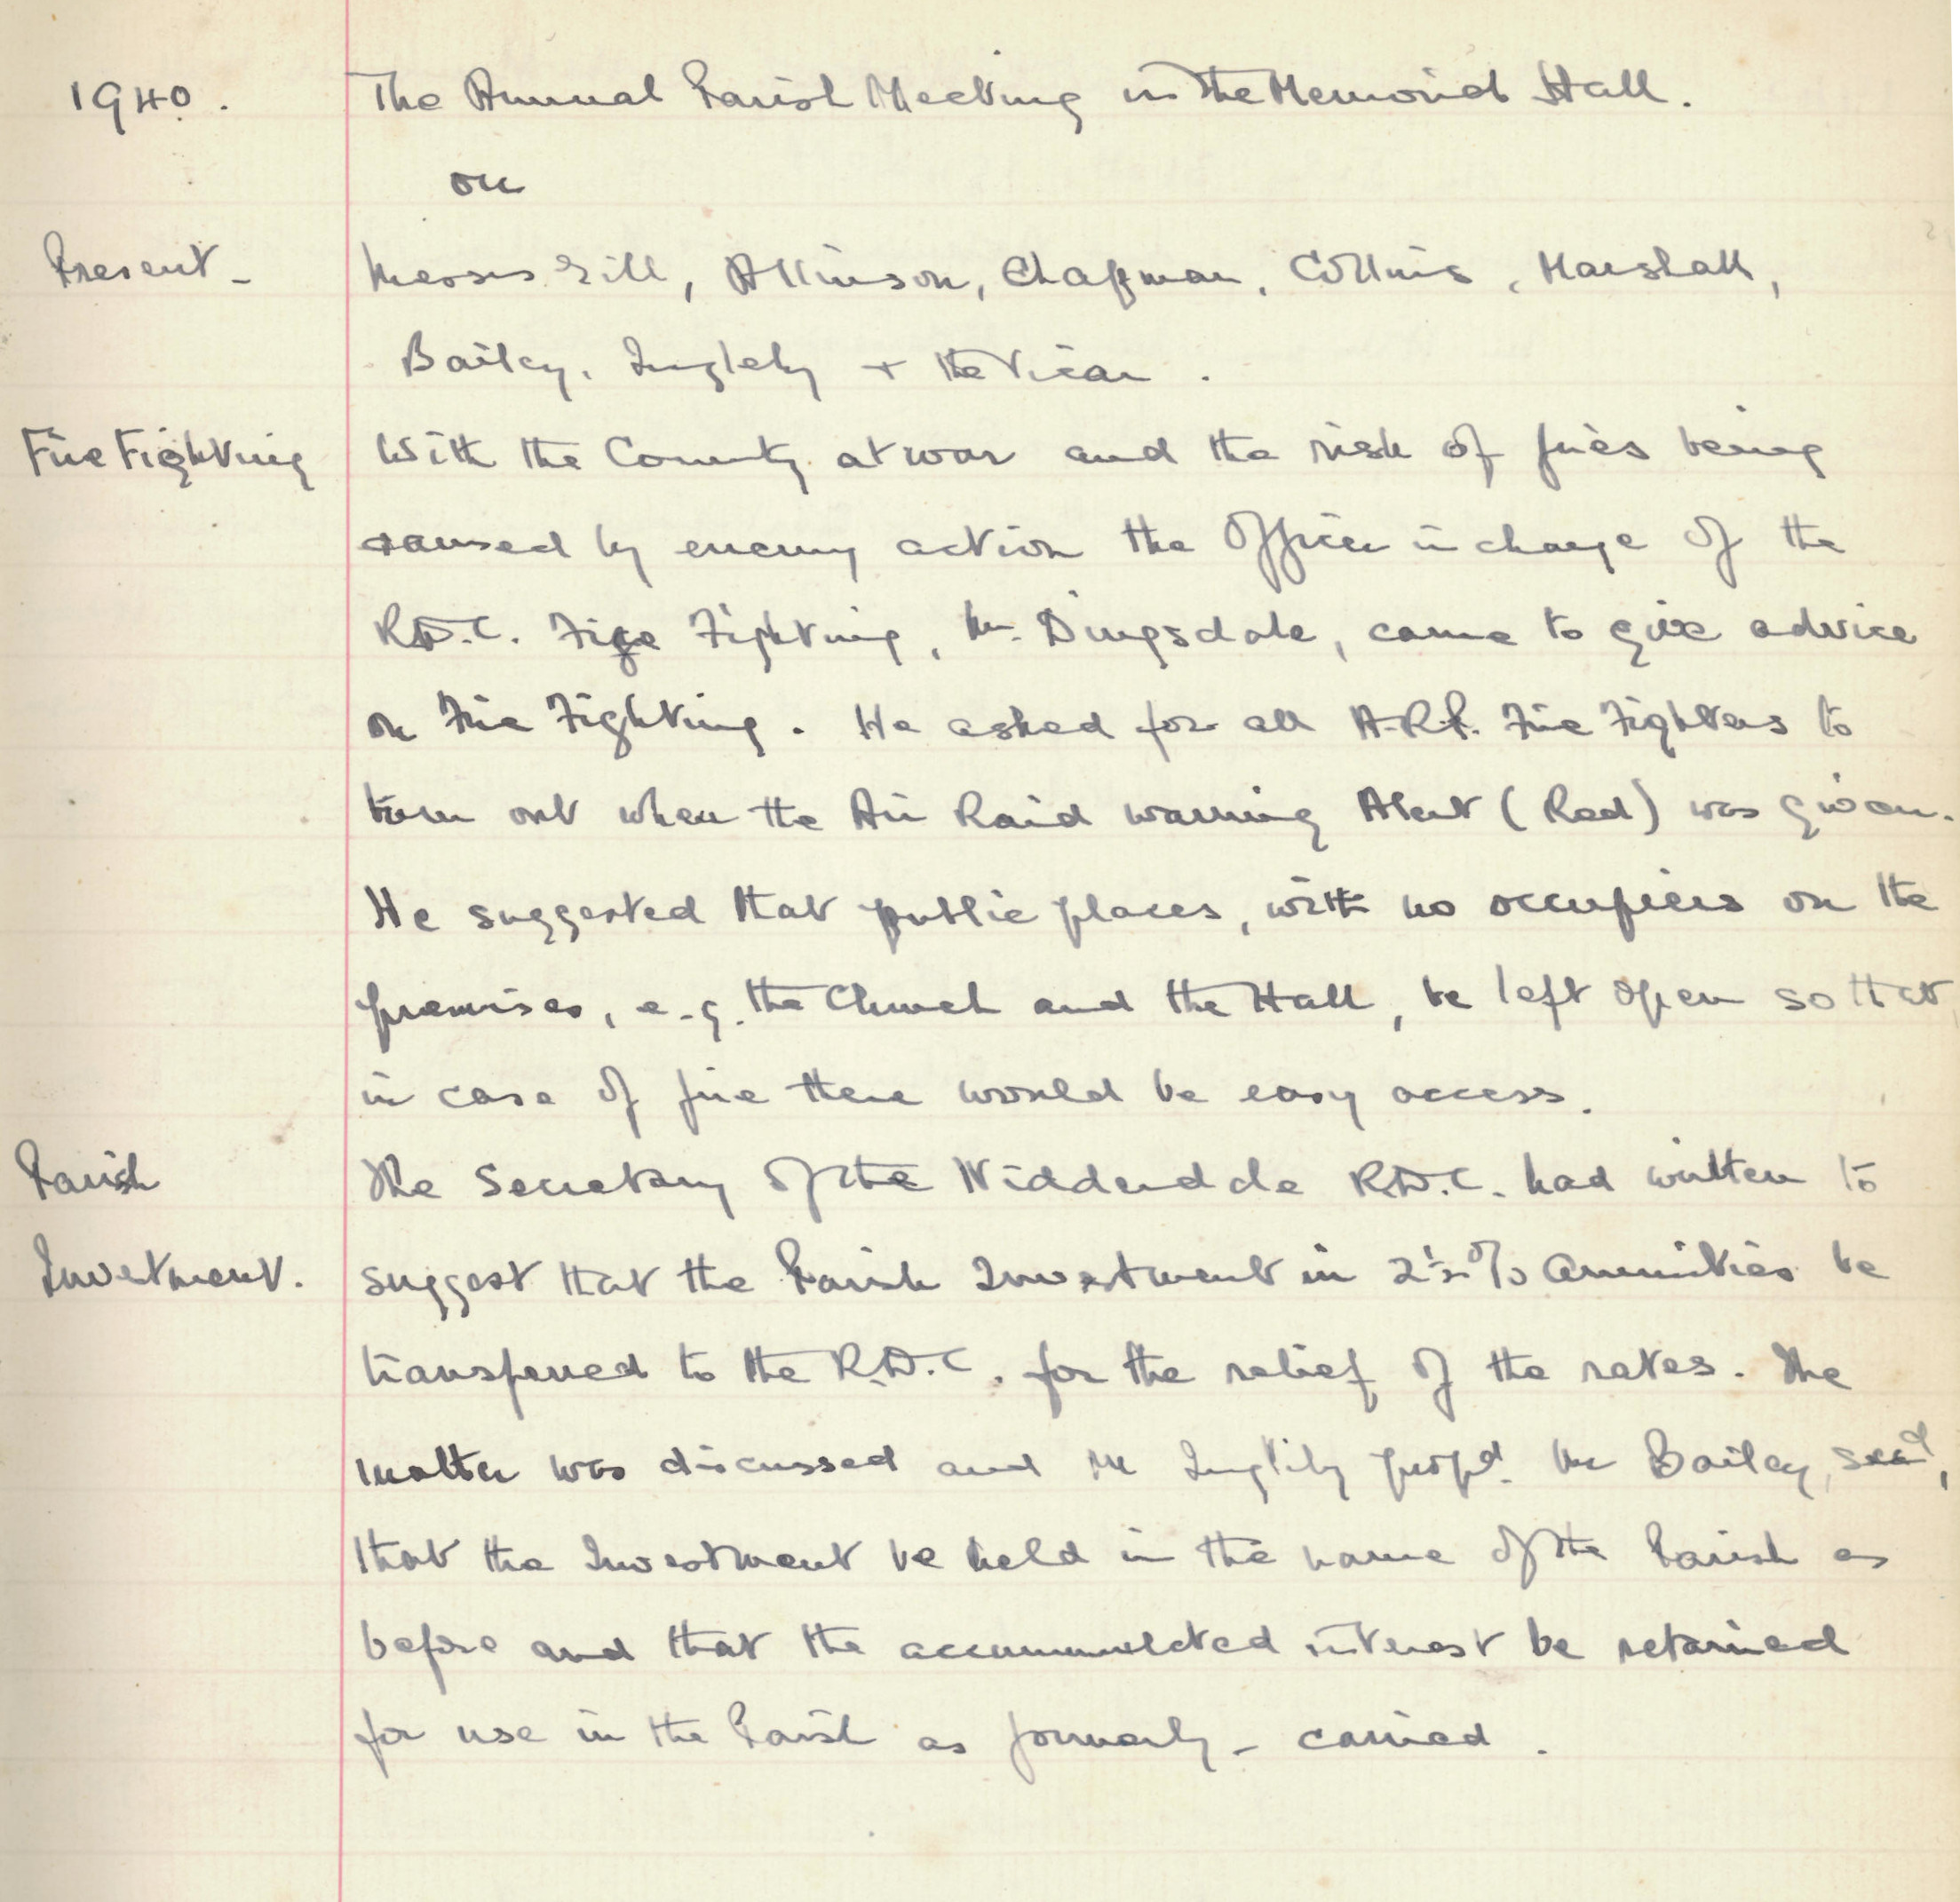 1940. The Annual Parish Meeting in the Memorial Hall.
on
Present - Messrs Gill, Atkinson, Chapman, Collins, Marshall,
Bailey, Ingleby + the Vicar.
Fire Fighting With the Country at war and the risk of fires being
caused by enemy action the Officer in charge of the
R.D.C. Fire Fighting, Mr. Dingsdale, came to give advice
on Fire Fighting. He asked for all A.R.P. Fire Fighters to
turn out when the Air Raid warning Alert (Red) was given.
He suggested that public places, with no occupiers on the
premises, e.g. the Church and the Hall, be left open so that
in case of fire there would be easy access.
Parish The Secretary of the Nidderdale R.D.C. had written to
Investment. suggest that the Parish Investment in 2½% Annuities be
transferred to the R.D.C. for the relief of the rates. The
matter was discussed and Mr Ingleby propd. Mr Bailey, secd,
that the Investment be held in the name of the Parish as
before and that the accummulated interest be retained
for use in the Parish as formerly - carried.